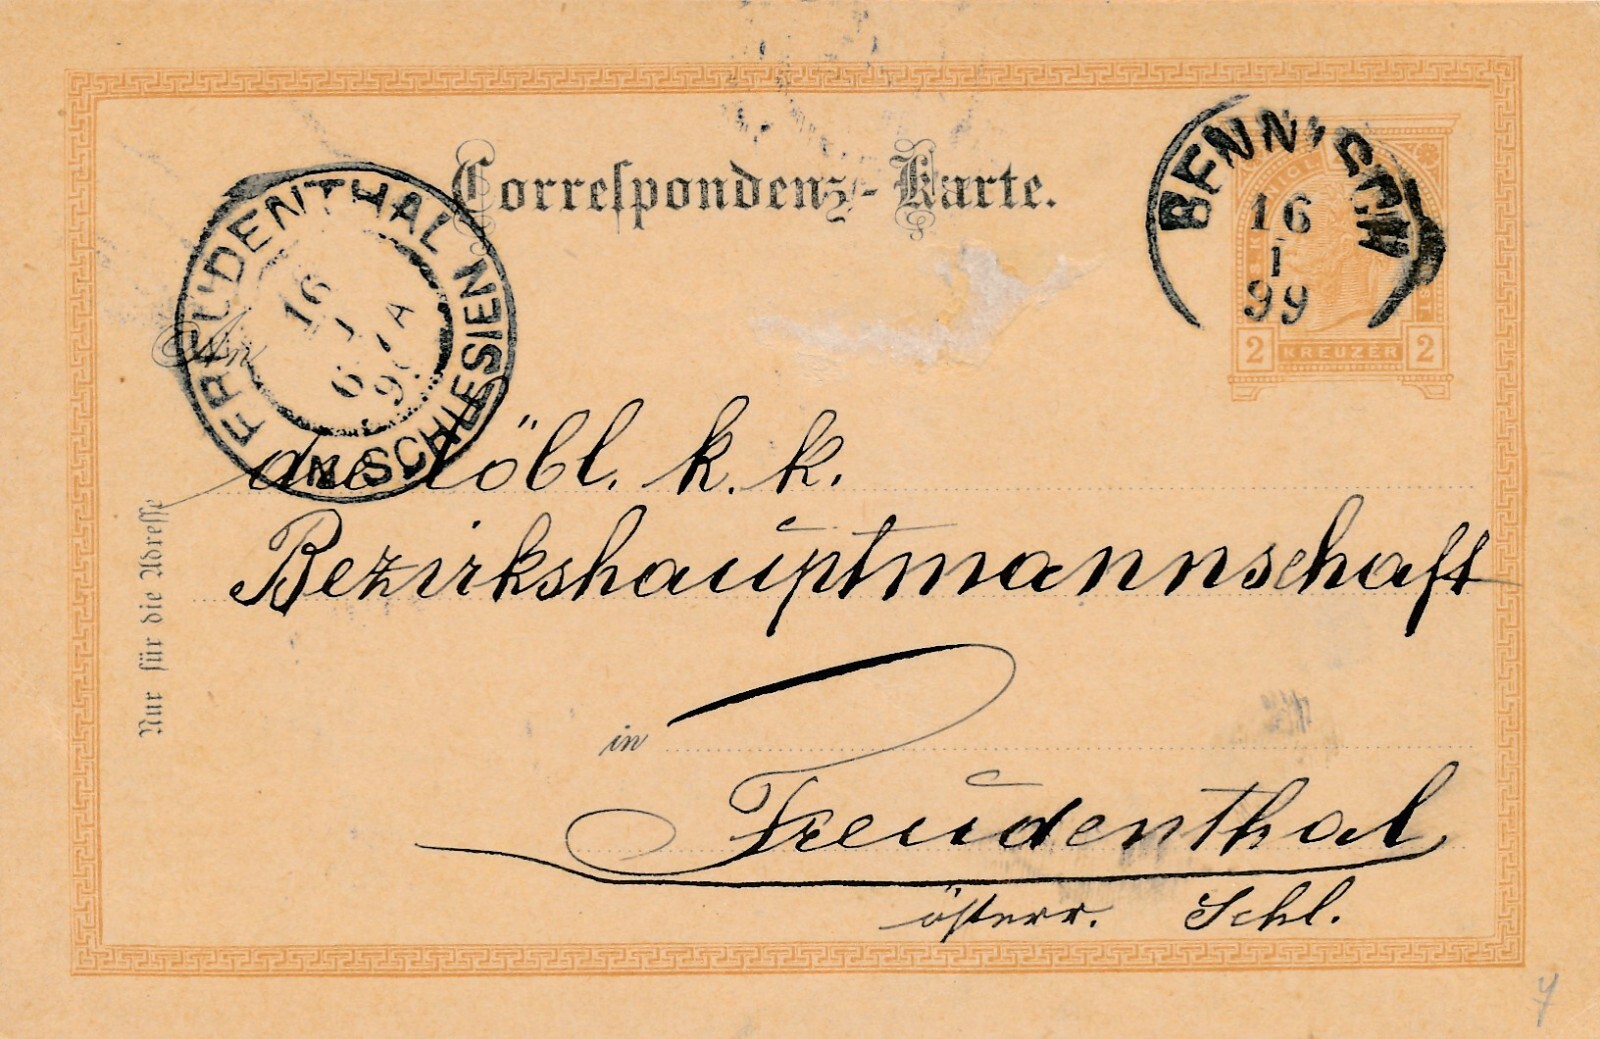 Correspondenz-Karte.
BENNISCH
16
1
99
2 KREUZER 2
FREUDENTHAL
IN SCHLESIEN
16
1
An
die löbl. k. k.
Bezirkshauptmannschaft
in
Freudenthal
österr. Schl.
Nur für die Adresse